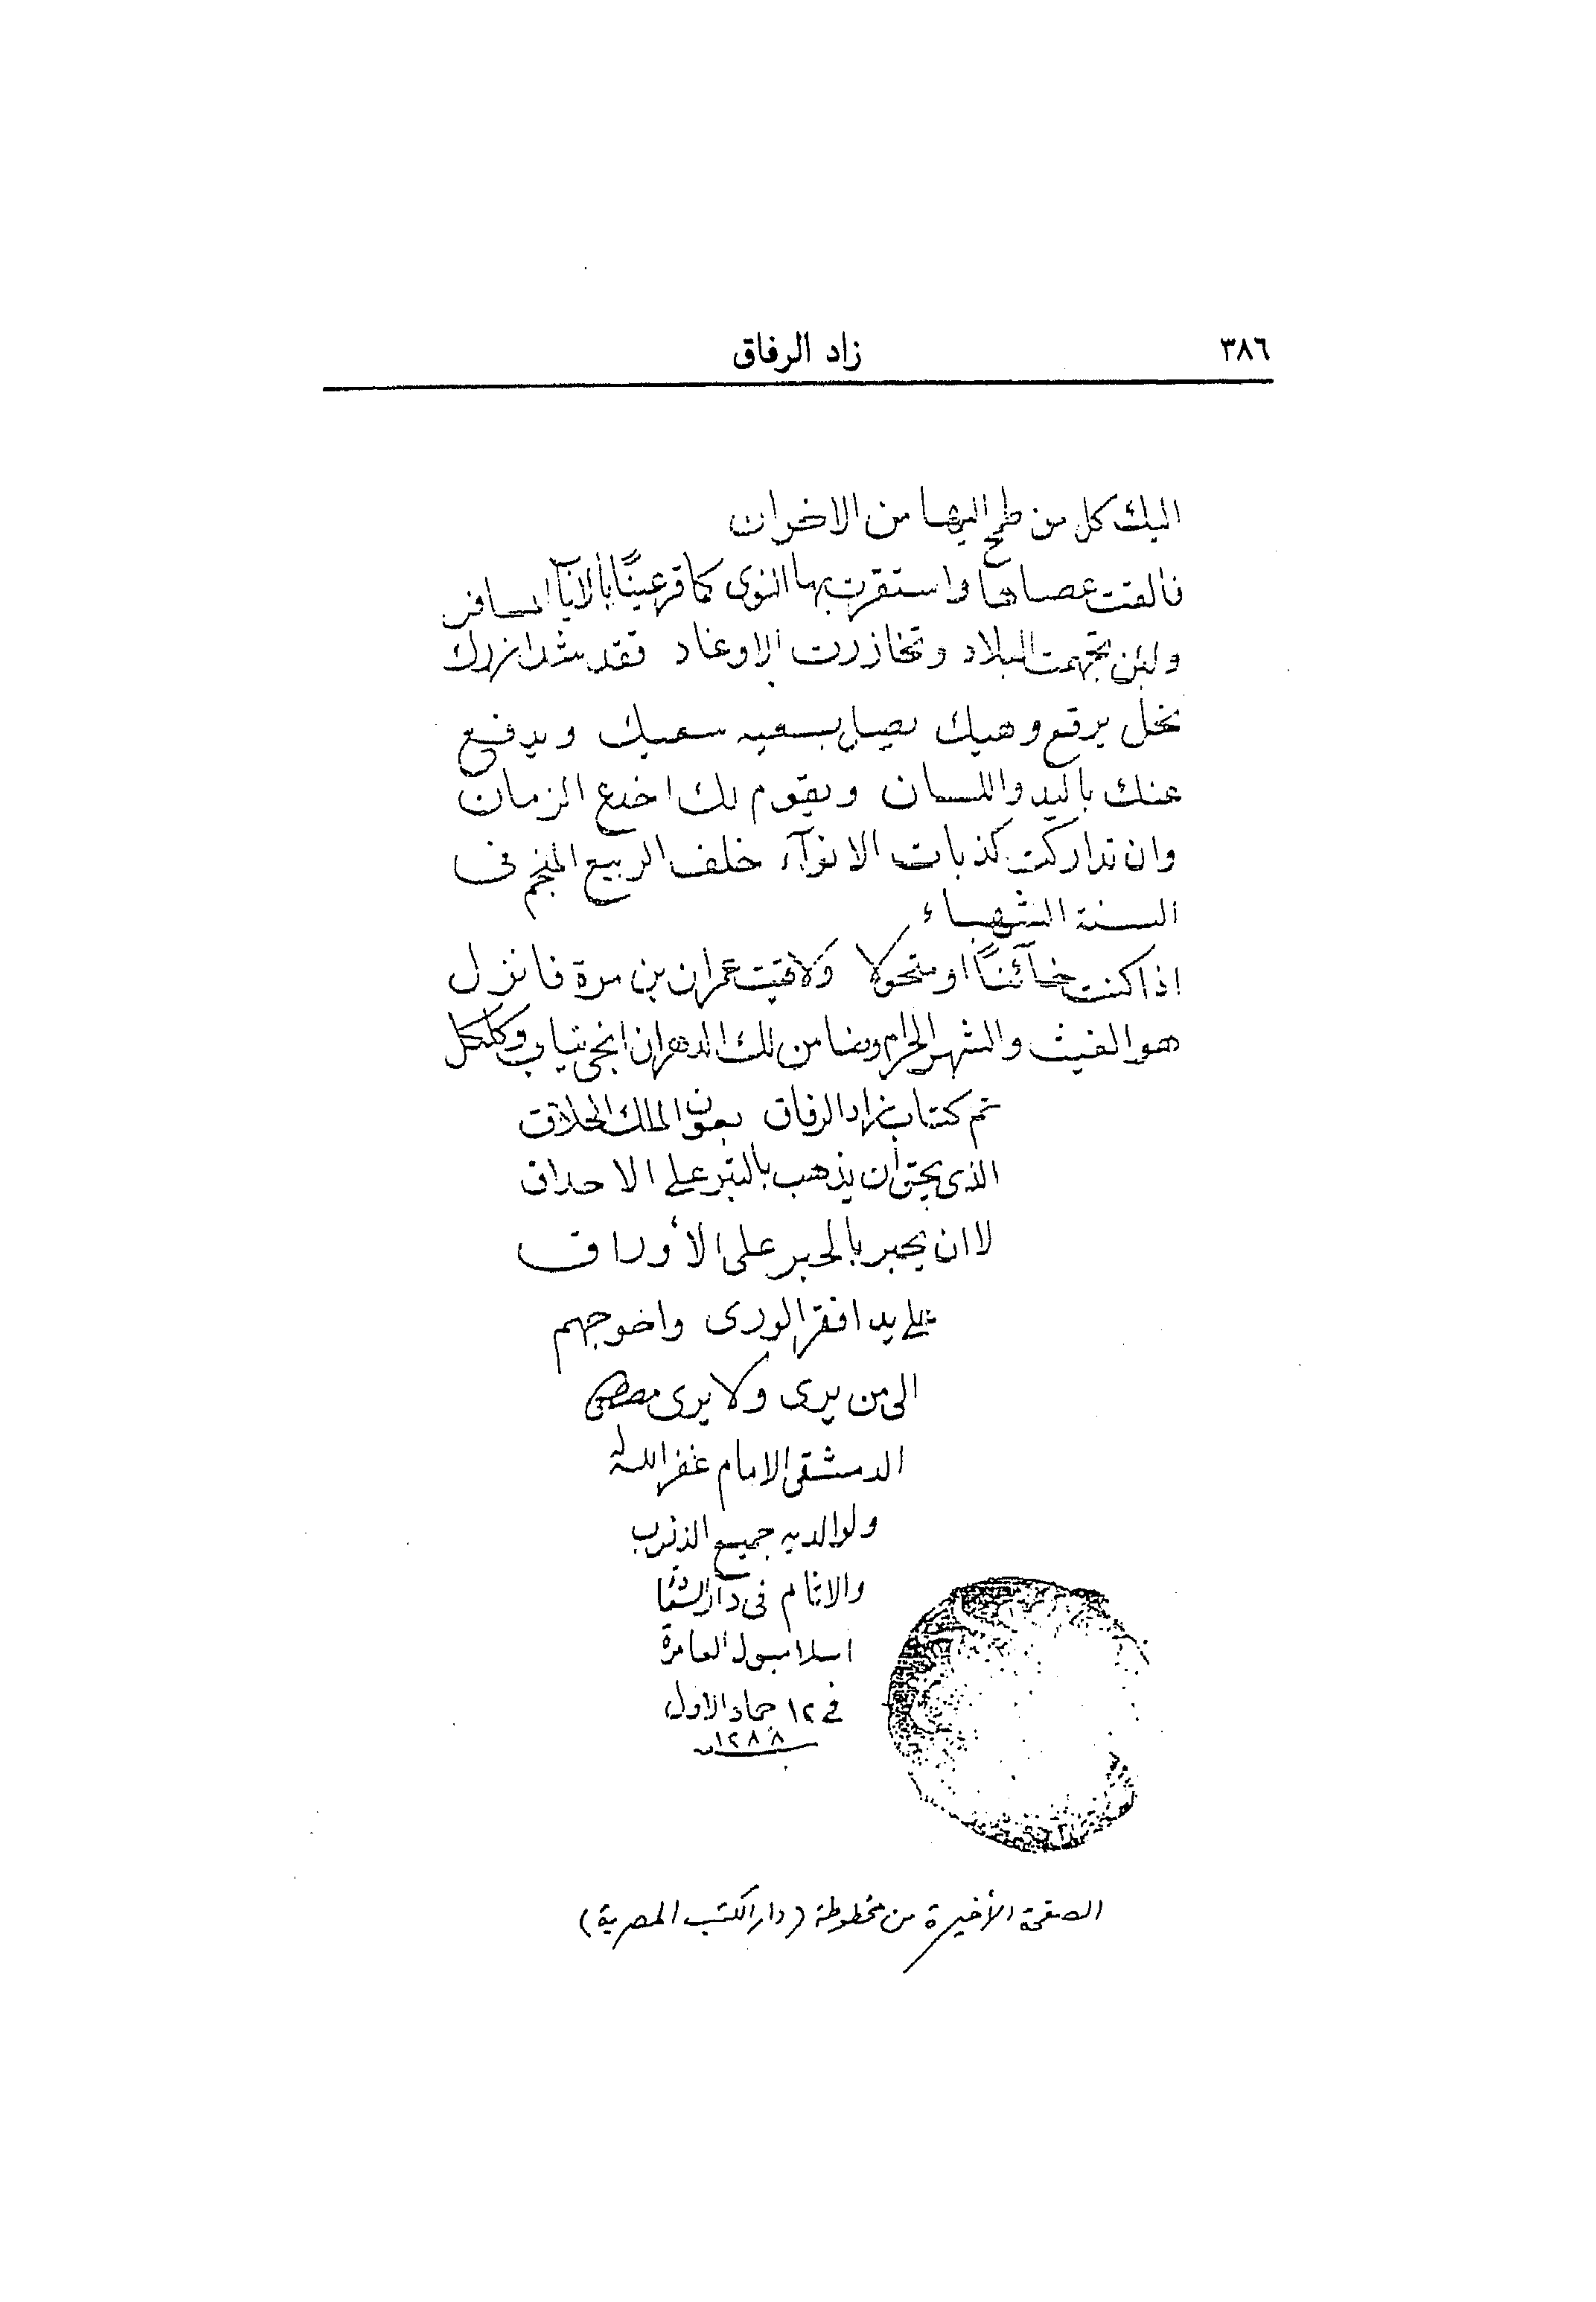 ٣٨٦
زاد الرفاق
اليك كل من طمح اليها من الاخوان
فالقت عصاها واستقرت بها النوى كما قر عينًا بالاياب المسافر
ولئن تجهمت البلاد وتخازرت الاوغاد فقد شد ازرك
بخل يرقع وهيك يصل بسعيه سعيك ويدفع
عنك باليد واللسان ويقوم لك اخدع الزمان
وان تداركت كذبات الانوآء خلف الربيع المنجم فى
السنة الشهباء
اذا كنت خآئنًا او متحولا ولاقيت عمران بن مرة فانزل
هو الغيث والشهر الحرام وضامن لك الدهر ان انحى بناب وكلكل
تم كتاب زاد الرفاق بعون الملك الخلاق
الذى يحق ان يذهب بالتبر على الاحداق
لا ان يحبر بالحبر على الأوراق
على يد افقر الورى واحوجهم
الى من يرى ولا يرى مصطفى
الدمشقى الامام غفر الله له
ولوالديه جميع الذنوب
والاثام فى دار
اسلامبول العامرة
فى ١٢ جماد الاول
١٢٨٨
الصفحة الأخيرة من مخطوطة (دار الكتب المصرية)